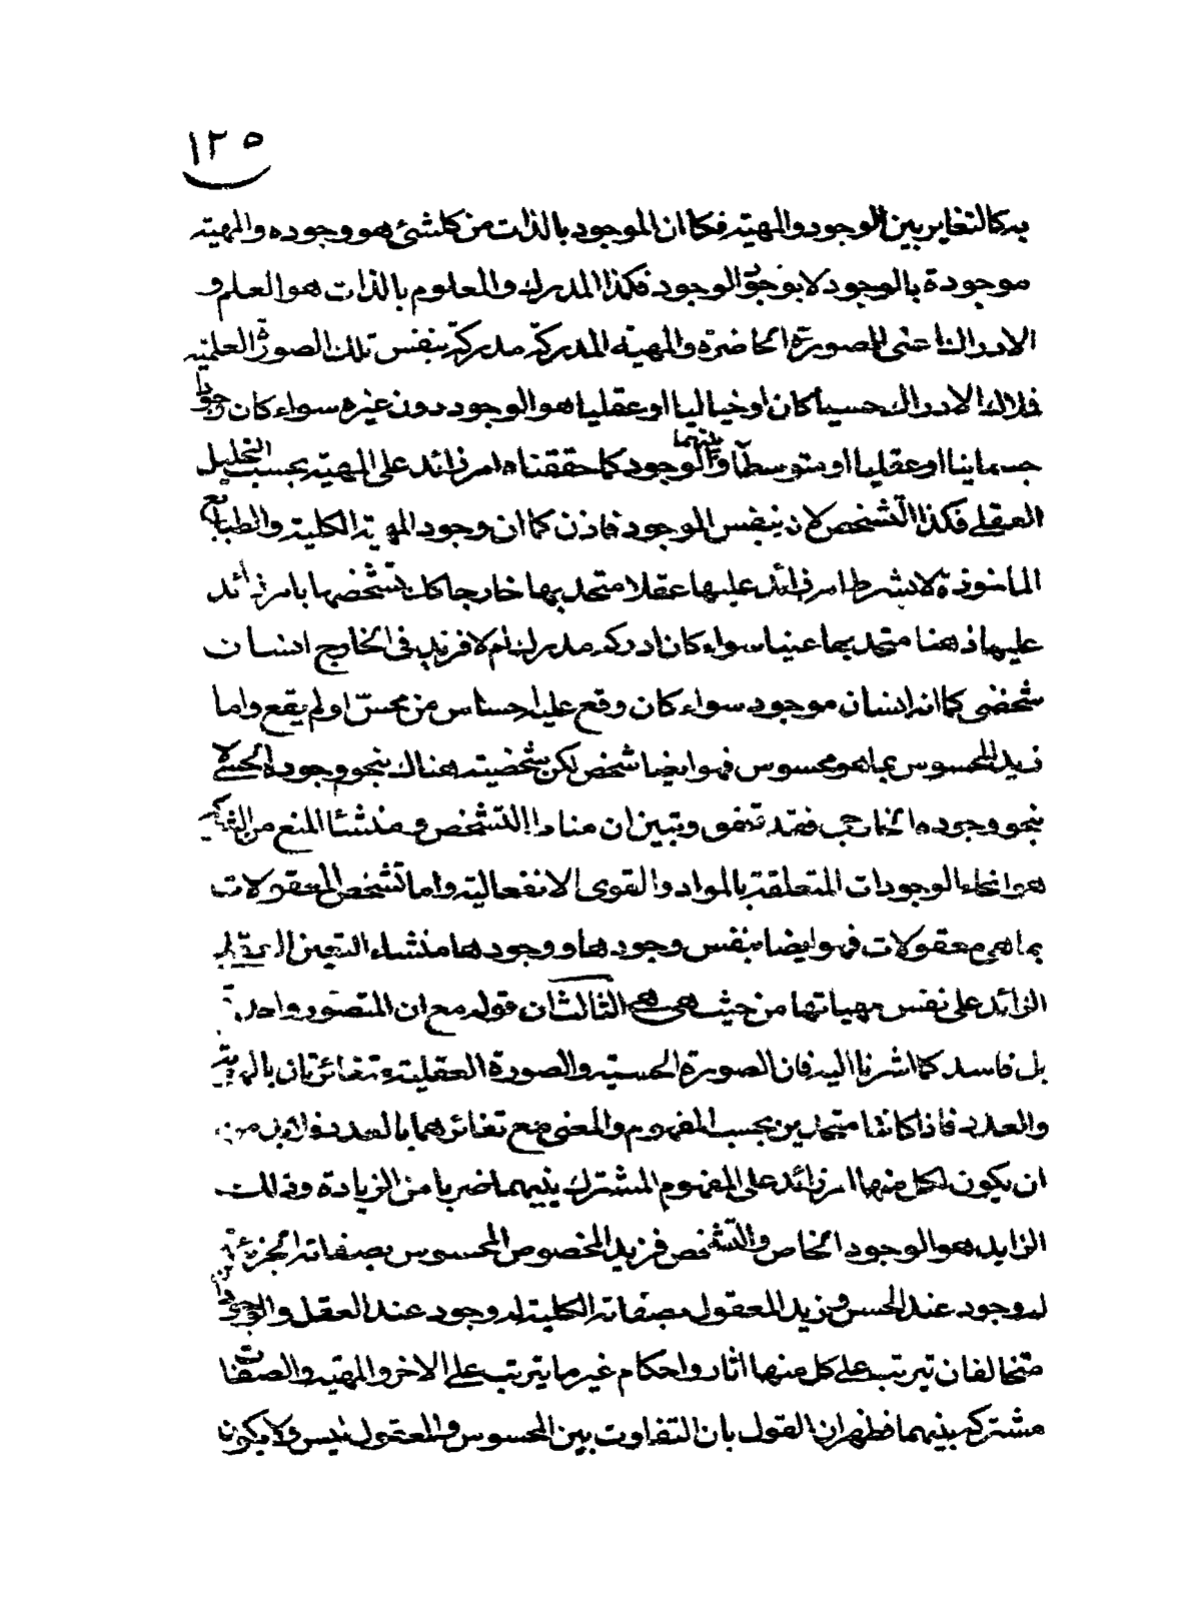 ١٢٥
به كالتغاير بين الوجود والمهية فكما ان الموجود بالذات من كلشئ هو وجوده والمهية
موجودة بالوجود لا بوجود الوجود فكذا المدرك والمعلوم بالذات هو العلم و
الادراك اعنى الصورة الحاضرة والمهية المدركة مدركة بنفس تلك الصورة العلمية
فذلك الادراك حسيا كان او خياليا او عقليا هو الوجود دون غيره سواء كان وجودا
جسمانيا او عقليا او متوسطا بينهما والوجود كما حققناه امر زائد على المهية بحسب التحليل
العقلى فكذا التشخص لانه بنفس الوجود فاذن كما ان وجود المهية الكلية والطبايع
الماخوذة لا بشرط امر زائد عليها عقلا متحد بها خارجا كك تشخصها بامر زائد
عليها ذهنا متحد بها عينا سواء كان ادركه مدرك ام لا فزيد فى الخارج انسان
شخصى كما انه انسان موجود سواء كان وقع عليه احساس من محس او لم يقع واما
زيد المحسوس بما هو محسوس فهو ايضا شخص لكن شخصيته هناك بنحو وجوده الحسى لا
بنحو وجوده الخارجى فقد تحقق وتبين ان مناط التشخص ومنشئا المنع من الشركة
هو انحاء الوجودات المتعلقة بالمواد والقوى الانفعالية واما تشخص المعقولات
بما هى معقولات فهو ايضا بنفس وجودها ووجودها منشاء التعين العقلى
الزائد على نفس مهياتها من حيث هى هى الثالث ان قوله مع ان المتصور واحد
بل فاسد كما اشرنا اليه فان الصورة الحسية والصورة العقلية متغائرتان بالهوية
والعدد فاذا كانتا متحدين بحسب المفهوم والمعنى مع تغائرهما بالعدد فلابد من
ان يكون لكل منها امر زائد على المفهوم المشترك بينهما ضربا من الزيادة وذلك
الزايد هو الوجود الخاص والتشخص فزيد المخصوص المحسوس بصفاته الجزئية
له وجود عند الحس وزيد المعقول بصفاته الكلية له وجود عند العقل والوجودان
متخالفان تيرتب على كل منها اثار واحكام غير ما يترتب على الاخر والمهية والصفات
مشتركة بينهما فظهر ان القول بان التفاوت بين المحسوس والمعقول ليس ولا يكون